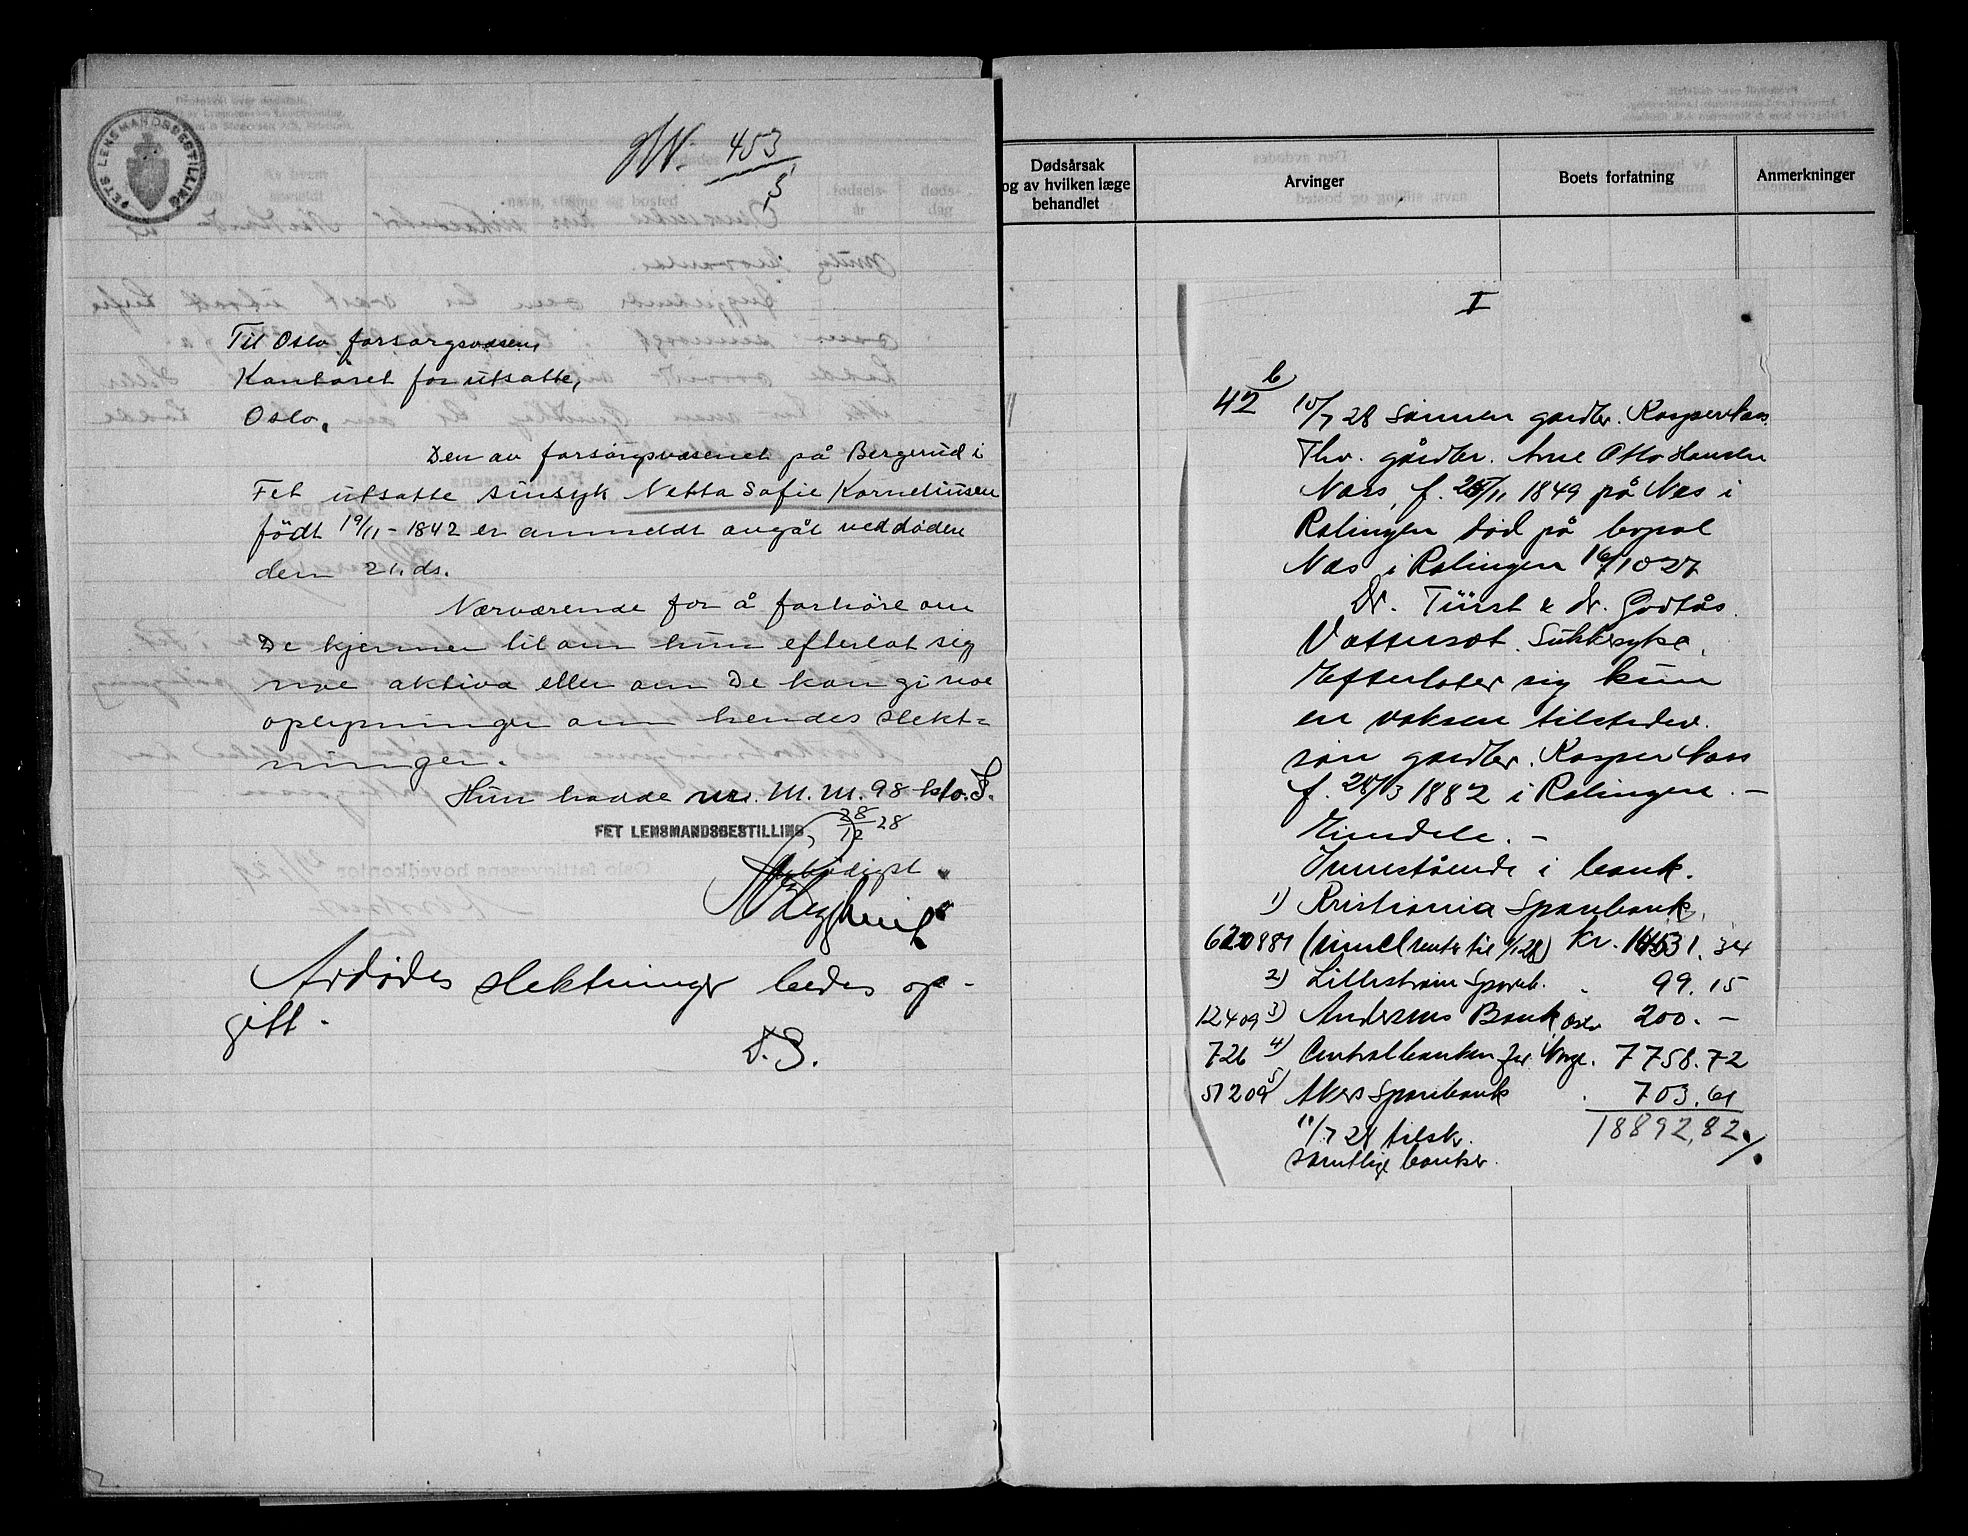 FETS LENSMANDSBESTILLING
N. 453
5
Til Oslo forsorgsvæsen,
Kontoret for utsatte,
Oslo.
Den av forsorgsvæsenet på Bergerud i
Fet utsatte sinsyk Netta Sofie Korneliusen
födt 19/11 - 1842 er anmeldt avgåt ved döden
den 21. ds.
Nærværende for å forhöre om
De kjenner til om hun efterlot sig
noe aktiva eller om De kan gi noe
oplysninger om hendes slekt-
ninger.
Hun hadde nr. M.M. 98
FET LENSMANDSBESTILLING, 28/12 28
Ærbödigst
Avdødes slektninger bedes op-
gitt.
D.S.
Dødsårsak
og av hvilken læge
behandlet
Arvinger
Boets forfatning
Anmerkninger
I
42 b
10/7 28 Sönnen gardbr. Kasper Næss
Thv. gårdbr. Arne Otto Hansen
Næss, f. 1849 på Næs i
Rælingen död på bopæl
Næs i Rælingen 16/10 27
Dr. Türst & Dr. Godtås.
Vattersot. Sukkersyke.
Efterlater sig kun
en voksen tilstedev.
sön gardbr. Kasper Næss
f. 28/3 1882 i Rælingen. -
Eiendele. -
Innestående i bank.
1) Kristiania Sparebank,
620881 (innel rente til 1/1 28) Kr. 34
2) Lilleström Spareb. 99.15
12409 3) Andresens Bank Oslo 200.-
726 4) Centralbanken for Norge. 7758.72
51209 5) Akers Sparebank 703.61
18892,82
11/7 28 tilskr.
samtlige banker.